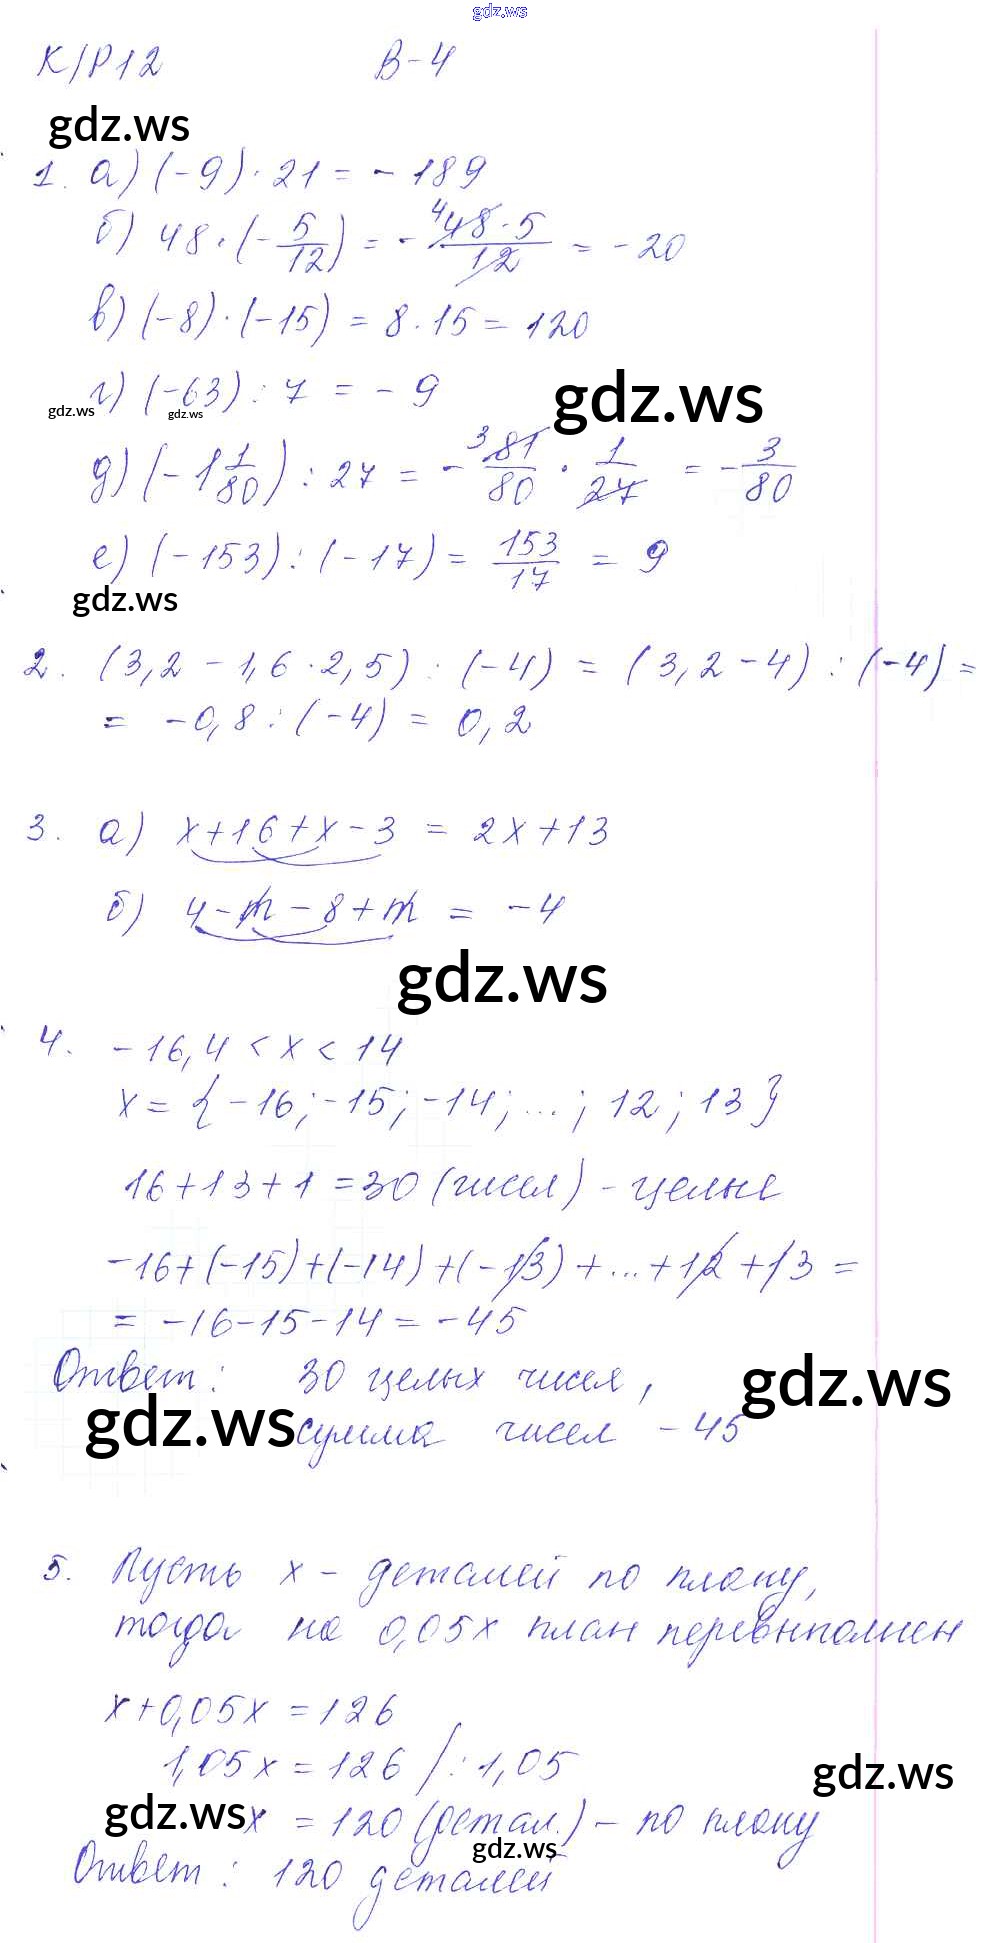 gdz.ws
К/Р12 В-4
gdz.ws
1. а) (-9)·21 = -189
б) 48·(-5/12) = -⁴48·5/12 = -20
в) (-8)·(-15) = 8·15 = 120
г) (-63):7 = -9
gdz.ws gdz.ws gdz.ws
д) (-1 1/80):27 = -³81/80 · 1/27 = -3/80
е) (-153):(-17) = 153/17 = 9
gdz.ws
2. (3,2 - 1,6·2,5):(-4) = (3,2-4):(-4) =
= -0,8:(-4) = 0,2
3. а) x+16+x-3 = 2x+13
б) 4-m-8+m = -4
gdz.ws
4. -16,4 < x < 14
x = {-16; -15; -14; ...; 12; 13}
16+13+1 = 30 (чисел) - целые
-16+(-15)+(-14)+(-13)+...+12+13 =
= -16-15-14 = -45
Ответ: 30 целых чисел,
gdz.ws
gdz.ws сумма чисел -45
5. Пусть x - деталей по плану,
тогда на 0,05x план перевыполнен
x+0,05x = 126
1,05x = 126 /:1,05
gdz.ws
gdz.ws x = 120 (детал.) - по плану
gdz.ws
Ответ: 120 деталей